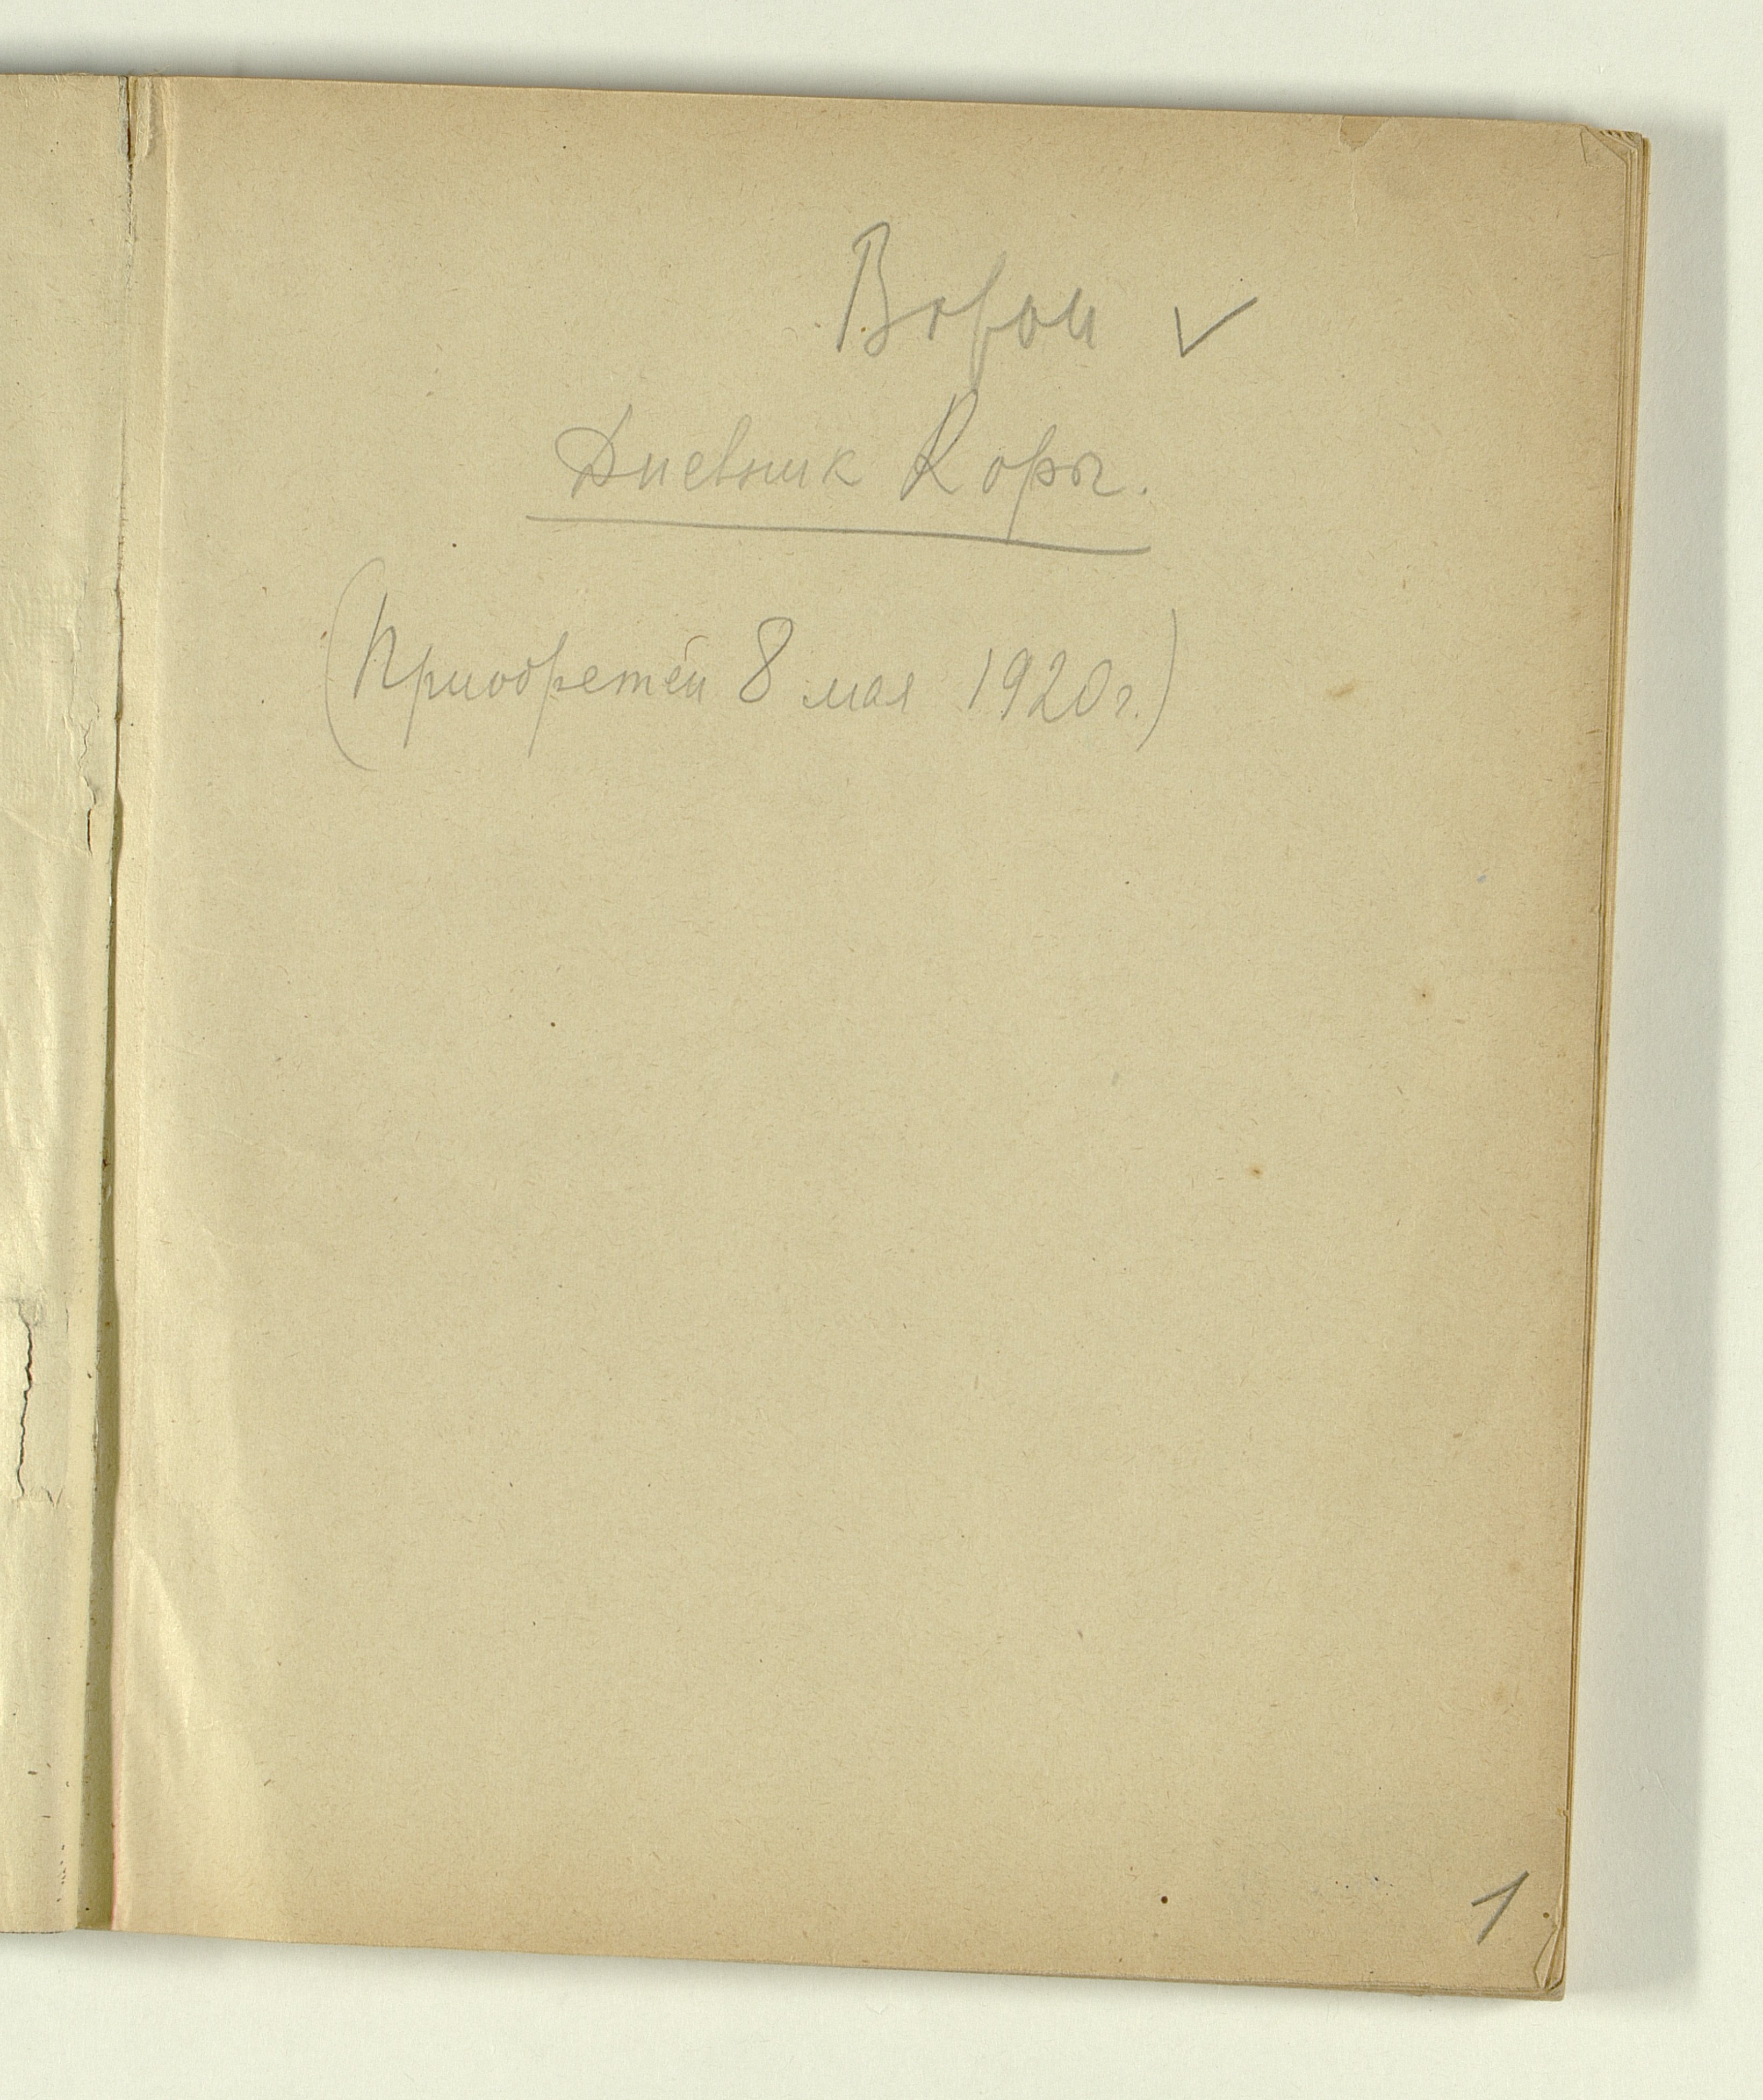 Ворон ✓
Дневник Коры.
(Приобретён 8 мая 1920 г.)
1